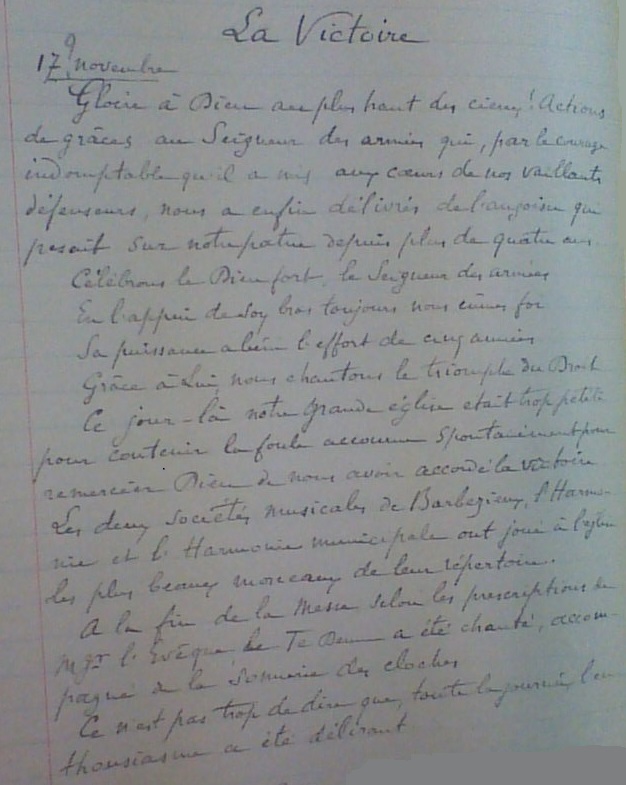 La Victoire
17 9 novembre
Gloire à Dieu au plus haut des cieux ! Actions
de grâces au Seigneur des armées qui, par le courage
indomptable qu'il a mis aux cœurs de nos vaillants
défenseurs, nous a enfin délivrés de l'angoisse qui
pesait sur notre patrie depuis plus de quatre ans.
Célébrons le Dieu fort, le Seigneur des armées
En l'appui de son bras toujours nous eûmes foi
Sa puissance a béni l'effort de cinq années
Grâce à Lui, nous chantons le triomphe du Droit
Ce jour-là notre grande église était trop petite
pour contenir la foule accourue spontanément pour
remercier Dieu de nous avoir accordé la victoire
Les deux sociétés musicales de Barbezieux, l'Harmo-
nie et l'Harmonie municipale ont joué à l'église
les plus beaux morceaux de leur répertoire.
A la fin de la Messe selon les prescriptions de
Mgr l'Evêque, le Te Deum a été chanté, accom-
pagné de la sonnerie des cloches
Ce n'est pas trop de dire que, toute la journée, l'en-
thousiasme a été délirant